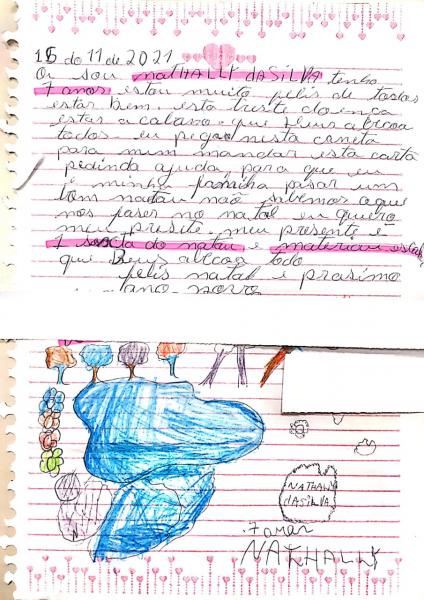 15 do 11 de 2021
Oi sou NATHALLY dASILVA tenho
7 anos estou muito felis de todos
estar bem. esta triste doença
estar acabano que Deus abecoa
todos eu pegei nista caneta
para mim mandar esta carta
pedinda ajuda para que eu
i minha familha pasar um
bom natau não sabemos aque
nos faser no natal eu quero
meu presite meu presente é
1 sesta do natau e materiau escola
que Deus abecoa todo
felis natal e prosimo
ano novo
NATHALY
dASILVA
7 anos
NATHALLY